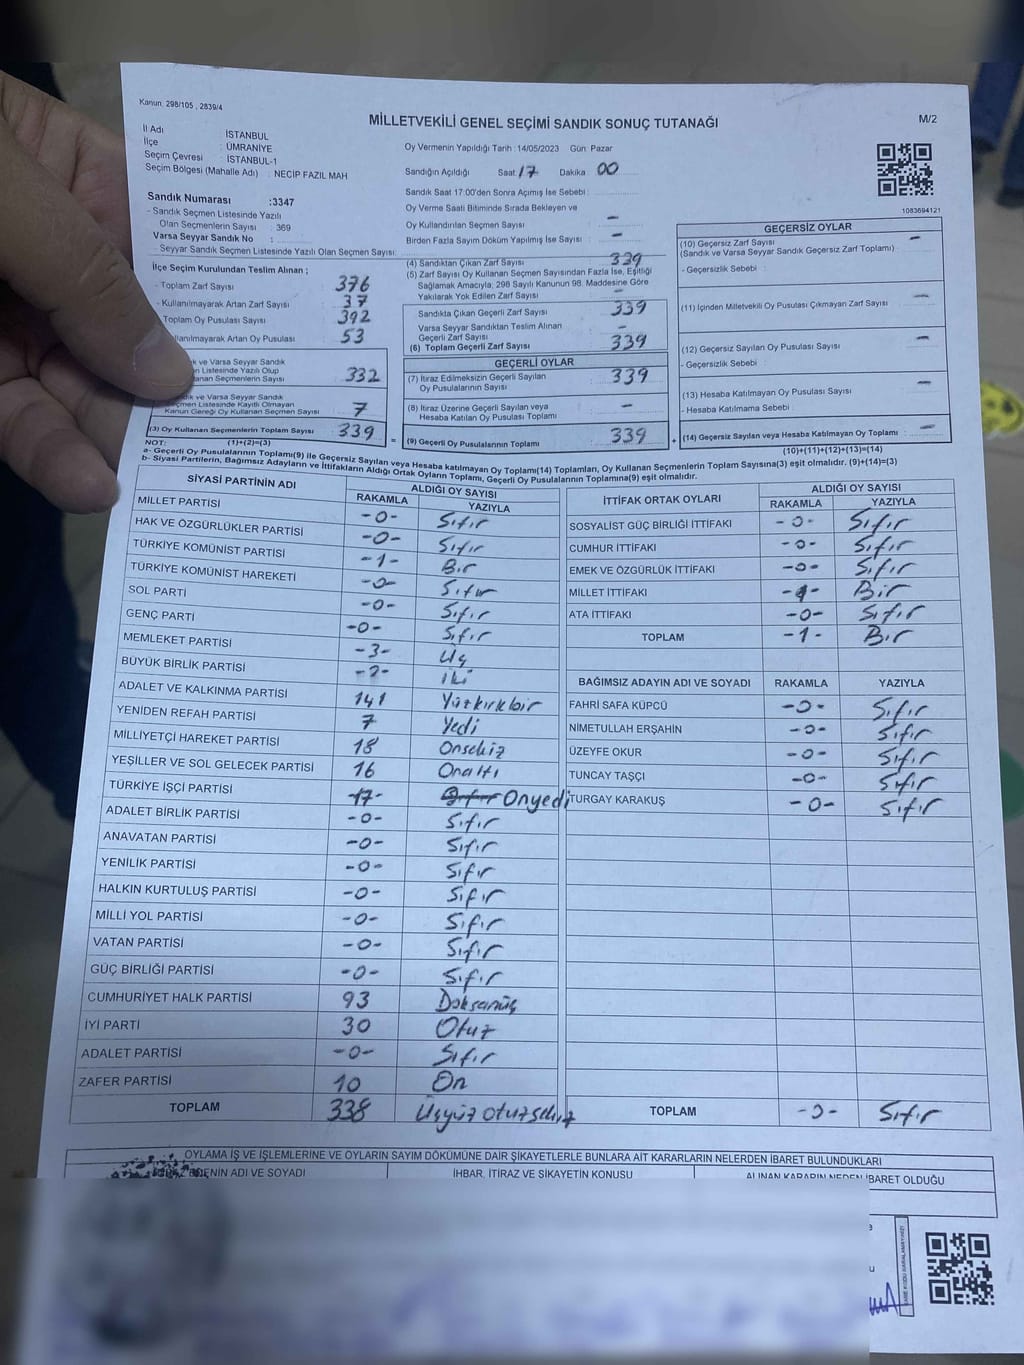 Kanun. 298/105 , 2839/4
MİLLETVEKİLİ GENEL SEÇİMİ SANDIK SONUÇ TUTANAĞI
M/2
İl Adı : İSTANBUL
İlçe : ÜMRANİYE
Seçim Çevresi : İSTANBUL-1
Seçim Bölgesi (Mahalle Adı) : NECİP FAZIL MAH
Sandık Numarası :3347
- Sandık Seçmen Listesinde Yazılı
Olan Seçmenlerin Sayısı : 369
Varsa Seyyar Sandık No :
- Seyyar Sandık Seçmen Listesinde Yazılı Olan Seçmen Sayısı:
İlçe Seçim Kurulundan Teslim Alınan ;
- Toplam Zarf Sayısı : 376
- Kullanılmayarak Artan Zarf Sayısı : 37
Toplam Oy Pusulası Sayısı : 392
llanılmayarak Artan Oy Pusulası : 53
k ve Varsa Seyyar Sandık
n Listesinde Yazılı Olup
lanan Seçmenlerin Sayısı : 332
dık ve Varsa Seyyar Sandık
çmen Listesinde Kayıtlı Olmayan
Kanun Gereği Oy Kullanan Seçmen Sayısı : 7
(3) Oy Kullanan Seçmenlerin Toplam Sayısı : 339 =
Oy Vermenin Yapıldığı Tarih : 14/05/2023 Gün Pazar
Sandığın Açıldığı Saat 17 Dakika 00
Sandık Saat 17:00'den Sonra Açımış İse Sebebi :
Oy Verme Saati Bitiminde Sırada Bekleyen ve
Oy Kullandırılan Seçmen Sayısı : -
Birden Fazla Sayım Döküm Yapılmış İse Sayısı : -
(4) Sandıktan Çıkan Zarf Sayısı : 339
(5) Zarf Sayısı Oy Kullanan Seçmen Sayısından Fazla İse, Eşitliği
Sağlamak Amacıyla, 298 Sayılı Kanunun 98. Maddesine Göre
Yakılarak Yok Edilen Zarf Sayısı : -
Sandıkta Çıkan Geçerli Zarf Sayısı : 339
Varsa Seyyar Sandıktan Teslim Alınan
Geçerli Zarf Sayısı : -
(6) Toplam Geçerli Zarf Sayısı : 339
GEÇERLİ OYLAR
(7) İtiraz Edilmeksizin Geçerli Sayılan
Oy Pusulalarının Sayısı : 339
(8) İtiraz Üzerine Geçerli Sayılan veya
Hesaba Katılan Oy Pusulası Toplamı : -
(9) Geçerli Oy Pusulalarının Toplamı : 339 +
1083694121
GEÇERSİZ OYLAR
(10) Geçersiz Zarf Sayısı : -
(Sandık ve Varsa Seyyar Sandık Geçersiz Zarf Toplamı)
- Geçersizlik Sebebi :
(11) İçinden Milletvekili Oy Pusulası Çıkmayan Zarf Sayısı : -
(12) Geçersiz Sayılan Oy Pusulası Sayısı : -
- Geçersizlik Sebebi :
(13) Hesaba Katılmayan Oy Pusulası Sayısı : -
- Hesaba Katılmama Sebebi :
(14) Geçersiz Sayılan veya Hesaba Katılmayan Oy Toplamı : -
NOT: (1)+(2)=(3)
(10)+(11)+(12)+(13)=(14)
a- Geçerli Oy Pusulasının Toplamı(9) ile Geçersiz Sayılan veya Hesaba katılmayan Oy Toplamı(14) Toplamları, Oy Kullanan Seçmenlerin Toplam Sayısına(3) eşit olmalıdır. (9)+(14)=(3)
b- Siyasi Partilerin, Bağımsız Adayların ve İttifakların Aldığı Ortak Oyların Toplamı, Geçerli Oy Pusulalarının Toplamına(9) eşit olmalıdır.
SİYASİ PARTİNİN ADI ALDIĞI OY SAYISI
RAKAMLA YAZIYLA
MİLLET PARTİSİ -0- Sıfır
HAK VE ÖZGÜRLÜKLER PARTİSİ -0- Sıfır
TÜRKİYE KOMÜNİST PARTİSİ -1- Bir
TÜRKİYE KOMÜNİST HAREKETİ -0- Sıfır
SOL PARTİ -0- Sıfır
GENÇ PARTİ -0- Sıfır
MEMLEKET PARTİSİ -3- Üç
BÜYÜK BİRLİK PARTİSİ -2- iki
ADALET VE KALKINMA PARTİSİ 141 Yüzkırkbir
YENİDEN REFAH PARTİSİ 7 Yedi
MİLLİYETÇİ HAREKET PARTİSİ 18 Onsekiz
YEŞİLLER VE SOL GELECEK PARTİSİ 16 Onaltı
TÜRKİYE İŞÇİ PARTİSİ 17- Sıfır Onyedi
ADALET BİRLİK PARTİSİ -0- Sıfır
ANAVATAN PARTİSİ -0- Sıfır
YENİLİK PARTİSİ -0- Sıfır
HALKIN KURTULUŞ PARTİSİ -0- Sıfır
MİLLİ YOL PARTİSİ -0- Sıfır
VATAN PARTİSİ -0- Sıfır
GÜÇ BİRLİĞİ PARTİSİ -0- Sıfır
CUMHURİYET HALK PARTİSİ 93 Doksanüç
İYİ PARTİ 30 Otuz
ADALET PARTİSİ -0- Sıfır
ZAFER PARTİSİ 10 On
TOPLAM 338 Üçyüz otuzsekiz
İTTİFAK ORTAK OYLARI ALDIĞI OY SAYISI
RAKAMLA YAZIYLA
SOSYALİST GÜÇ BİRLİĞİ İTTİFAKI -0- Sıfır
CUMHUR İTTİFAKI -0- Sıfır
EMEK VE ÖZGÜRLÜK İTTİFAKI -0- Sıfır
MİLLET İTTİFAKI -1- Bir
ATA İTTİFAKI -0- Sıfır
TOPLAM -1- Bir
BAĞIMSIZ ADAYIN ADI VE SOYADI RAKAMLA YAZIYLA
FAHRİ SAFA KÜPCÜ -0- Sıfır
NİMETULLAH ERŞAHİN -0- Sıfır
ÜZEYFE OKUR -0- Sıfır
TUNCAY TAŞÇI -0- Sıfır
TURGAY KARAKUŞ -0- Sıfır
TOPLAM -0- Sıfır
OYLAMA İŞ VE İŞLEMLERİNE VE OYLARIN SAYIM DÖKÜMÜNE DAİR ŞİKAYETLERLE BUNLARA AİT KARARLARIN NELERDEN İBARET BULUNDUKLARI
EDENİN ADI VE SOYADI İHBAR, İTİRAZ VE ŞİKAYETİN KONUSU ALINAN KARARIN NEDEN İBARET OLDUĞU